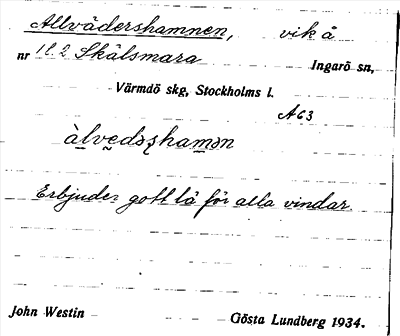 Allvädershamnen, vik å
nr 1 l. 2 Skälsmara Ingarö sn,
Värmdö skg, Stockholms l.
A 63
àlvedəʂhamən
Erbjuder gott lä för alla vindar
John Westin Gösta Lundberg 1934.